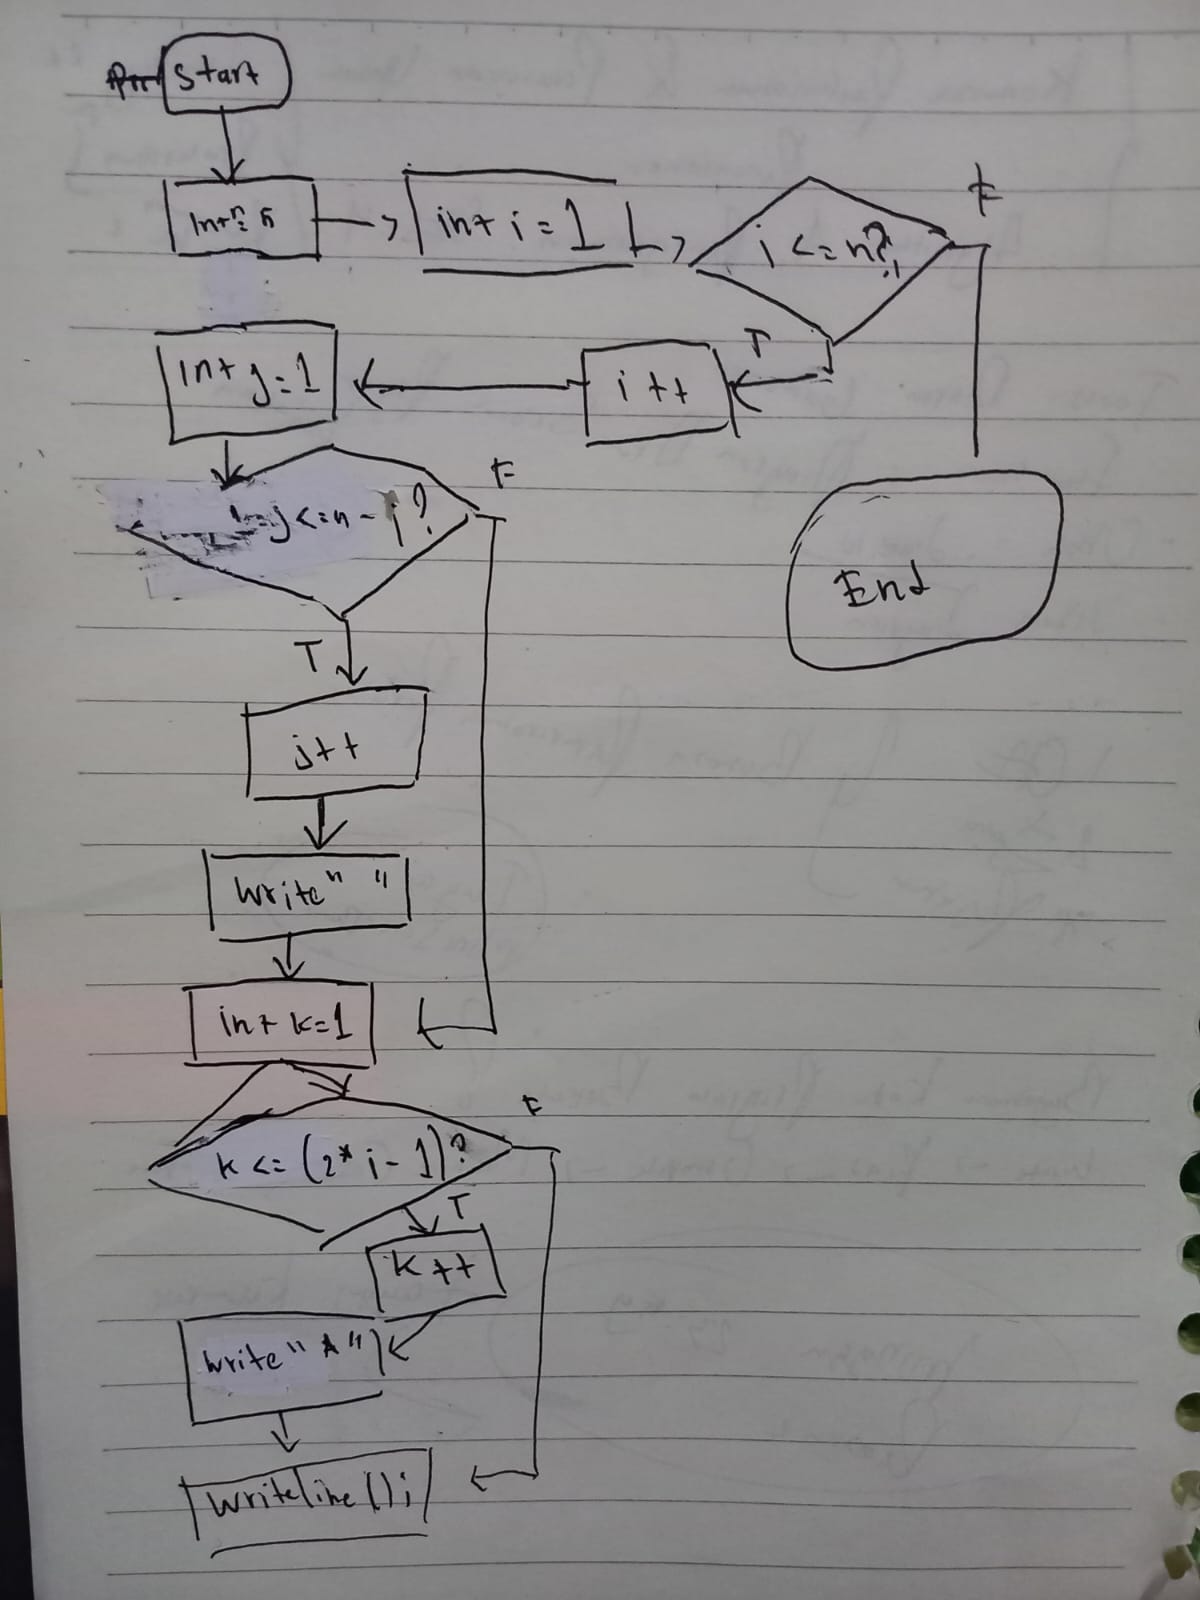 Start
int i = 1
i <= n?
F
T
i ++
int j = 1
j <= n - i ?
F
T
j++
Write " "
int k = 1
k <= (2 * i - 1) ?
F
T
k ++
Write " * "
Writeline ();
End